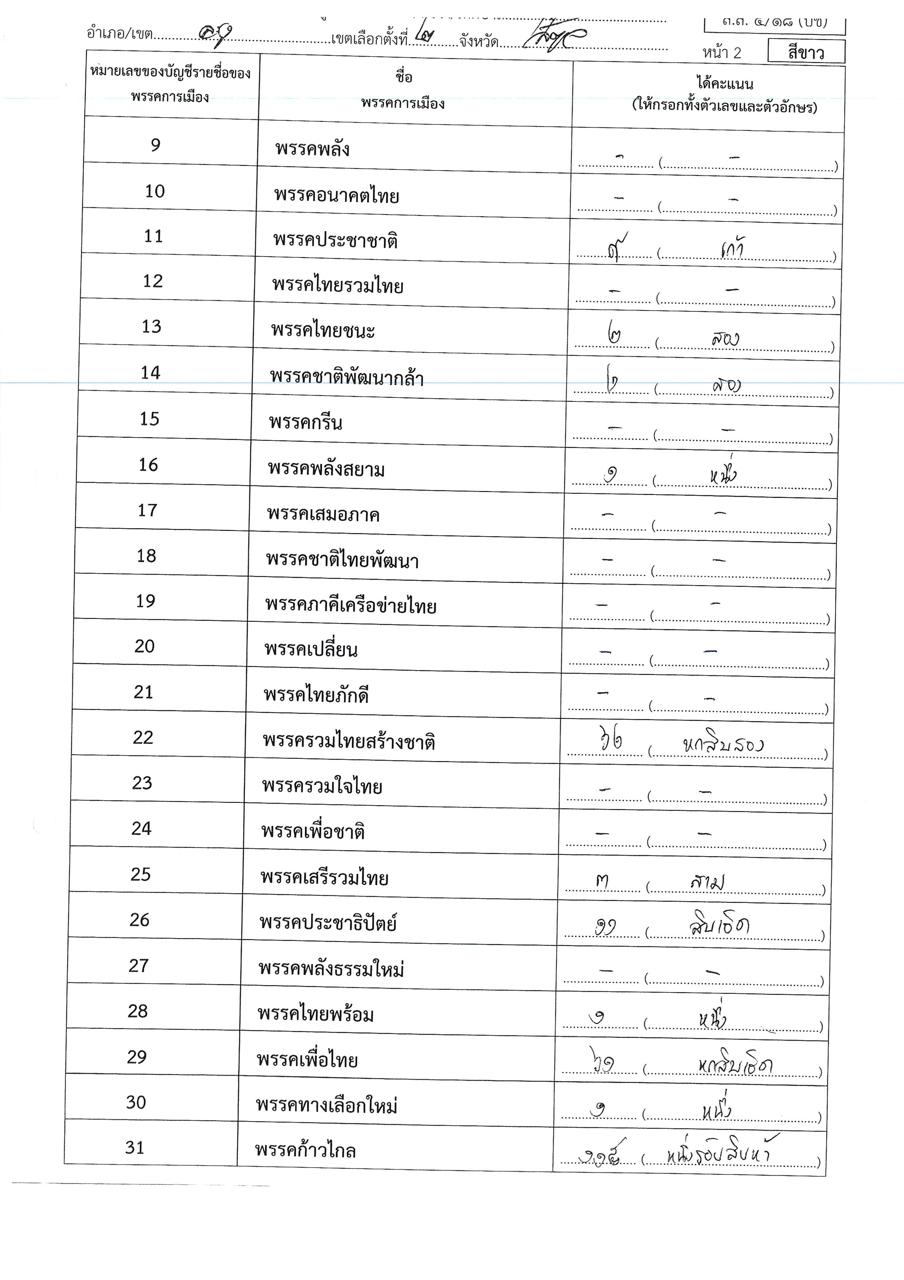 ส.ส. ๔/๑๘ (บช)
อำเภอ/เขต เขตเลือกตั้งที่ ๒ จังหวัด
หน้า 2 สีขาว
หมายเลขของบัญชีรายชื่อของพรรคการเมือง ชื่อพรรคการเมือง ได้คะแนน (ให้กรอกทั้งตัวเลขและตัวอักษร)
9 พรรคพลัง - ( - )
10 พรรคอนาคตไทย - ( - )
11 พรรคประชาชาติ ๙ ( เก้า )
12 พรรคไทยรวมไทย - ( - )
13 พรรคไทยชนะ ๒ ( สอง )
14 พรรคชาติพัฒนากล้า ๒ ( สอง )
15 พรรคกรีน - ( - )
16 พรรคพลังสยาม ๑ ( หนึ่ง )
17 พรรคเสมอภาค - ( - )
18 พรรคชาติไทยพัฒนา - ( - )
19 พรรคภาคีเครือข่ายไทย - ( - )
20 พรรคเปลี่ยน - ( - )
21 พรรคไทยภักดี - ( - )
22 พรรครวมไทยสร้างชาติ ๖๒ ( หกสิบสอง )
23 พรรครวมใจไทย - ( - )
24 พรรคเพื่อชาติ - ( - )
25 พรรคเสรีรวมไทย ๓ ( สาม )
26 พรรคประชาธิปัตย์ ๑๑ ( สิบเอ็ด )
27 พรรคพลังธรรมใหม่ - ( - )
28 พรรคไทยพร้อม ๑ ( หนึ่ง )
29 พรรคเพื่อไทย ๖๑ ( หกสิบเอ็ด )
30 พรรคทางเลือกใหม่ ๑ ( หนึ่ง )
31 พรรคก้าวไกล ๑๑๕ ( หนึ่งร้อยสิบห้า )